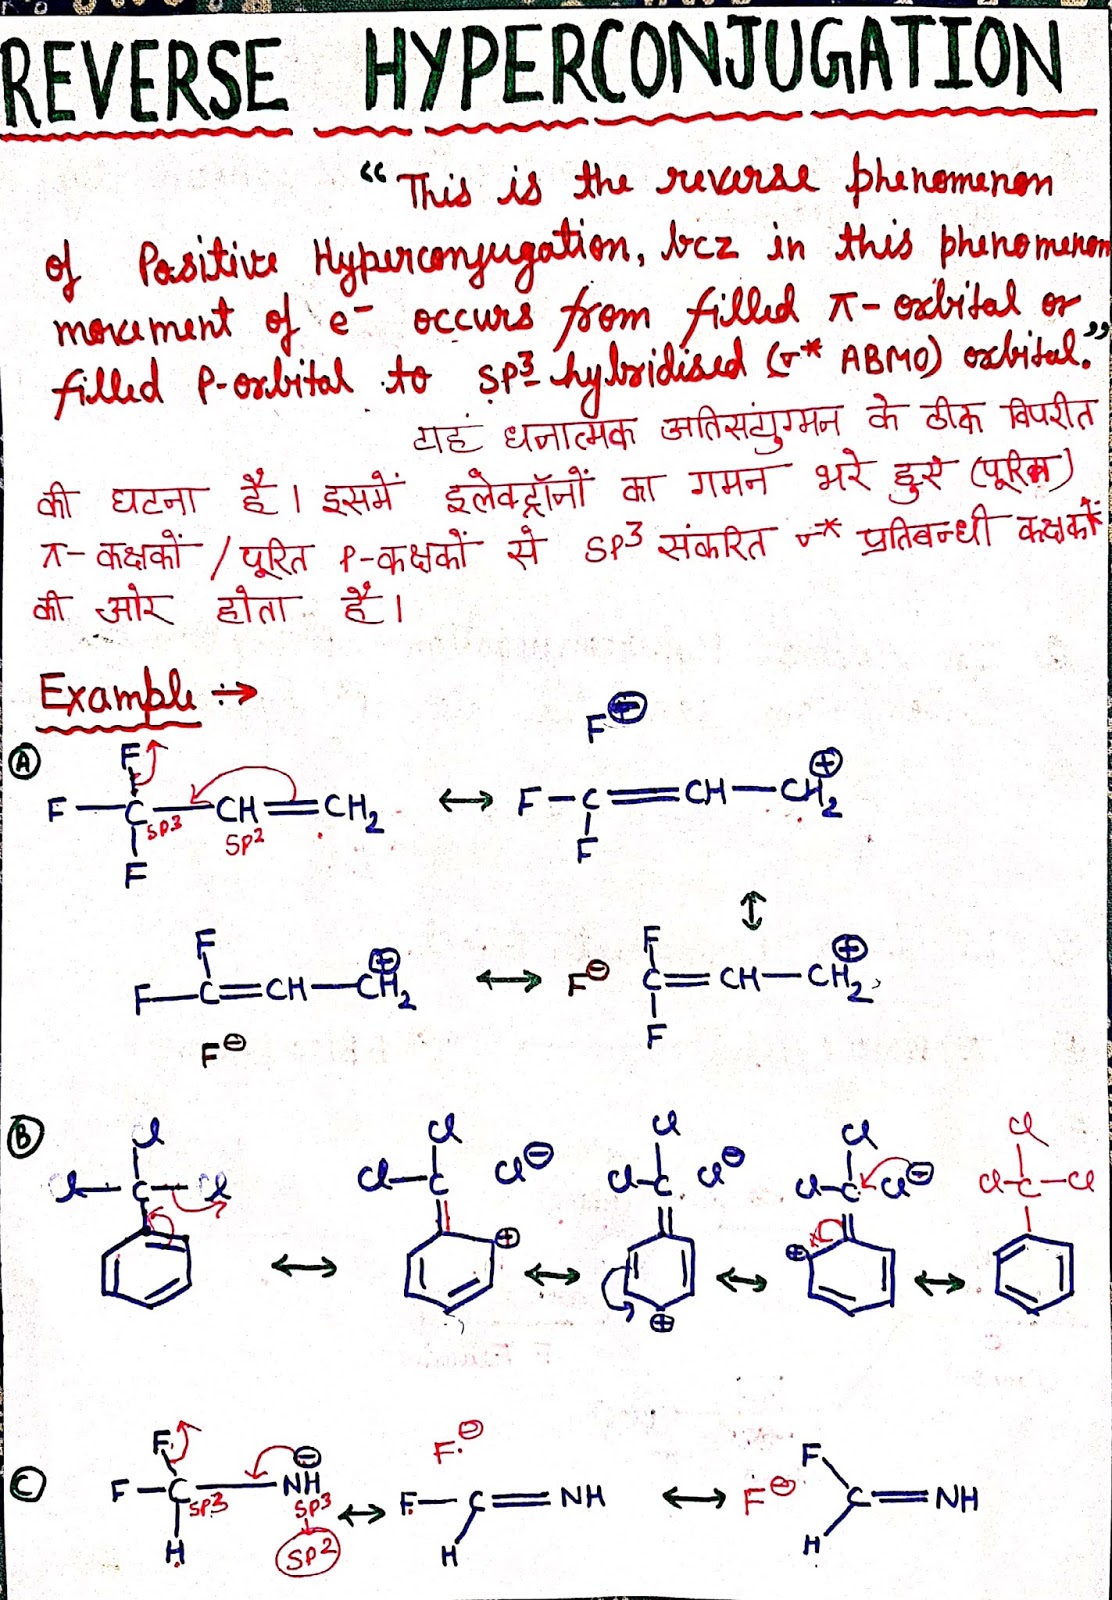 REVERSE HYPERCONJUGATION
“This is the reverse phenomenon
of Positive Hyperconjugation, bcz in this phenomenon
movement of e⁻ occurs from filled π-orbital or
filled P-orbital to SP³ hybridised (σ* ABMO) orbital.”
यह धनात्मक अतिसंयुग्मन के ठीक विपरीत
की घटना है। इसमें इलेक्ट्रॉनों का गमन भरे हुए (पूरित)
π-कक्षकों / पूरित P-कक्षकों से SP³ संकरित σ* प्रतिबन्धी कक्षकों
की ओर होता है।
Example :→
F F⊖
A F—C—CH=CH₂ ↔ F—C=CH—CH₂⊕
SP³ SP²
F F
↕
F F
F—C=CH—CH₂⊕ ↔ F⊖ C=CH—CH₂⊕
F⊖ F
B Cl Cl Cl Cl Cl
Cl—C—Cl Cl—C Cl⊖ Cl—C Cl⊖ Cl—C Cl⊖ Cl—C—Cl
⊕ ⊕
↔ ↔ ↔ ↔
⊕
F ⊖ F⊖ F
C F—C—NH ↔ F—C=NH ↔ F⊖ C=NH
SP³ SP³
H SP² H H